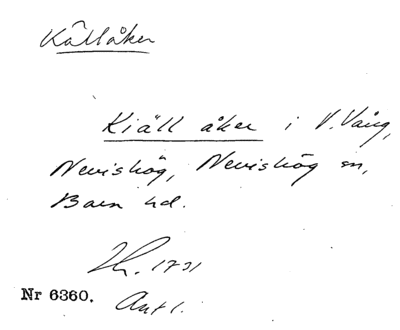 Källåker
Kiäll åker i V. Vång,
Nevishög, Nevishög sn,
Bara hd.
Th. 1731
Nr 6360. Ant 1.